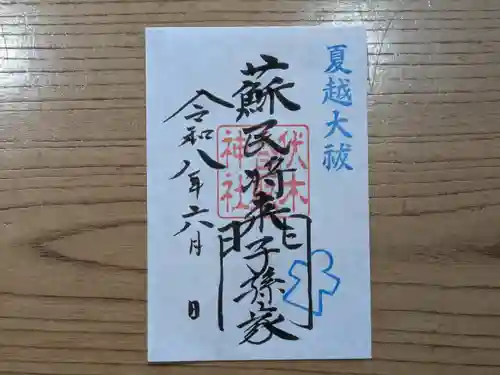 夏越大祓
蘇民将来子孫家門
伏木
神社
令和八年六月 日